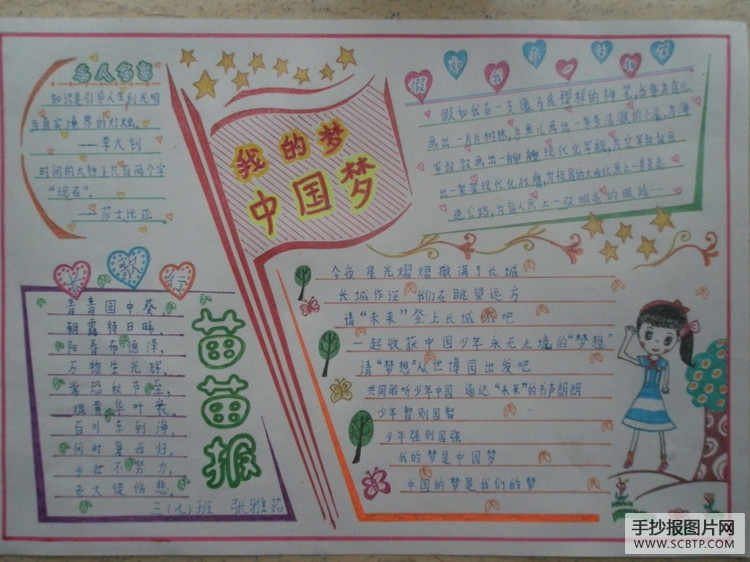 名人名言
知识是引导人生到光明
与真实境界的灯烛。
——李大钊
时间的大钟上只有两个字
“现在”。
——莎士比亚
我的梦
中国梦
假如我有一支
假如我有一支像马良那样的神笔,我要为鸟儿
画出一片片树林,为鱼儿画出一条条清澈的小溪,为海
军叔叔画出一艘艘现代化军舰,为空军叔叔画
出一架架现代化战鹰,为祖国的大西北画上一条条高
速公路,为盲人画上一双明亮的眼睛……
长歌行
青青园中葵,
朝露待日晞。
阳春布德泽,
万物生光辉。
常恐秋节至,
焜黄华叶衰。
百川东到海,
何时复西归。
少壮不努力,
老大徒伤悲。
三(七)班 张雅茹
苗苗报
今夜星光熠熠撒满了长城
长城作证 我们在眺望远方
请“未来”登上长城 来吧
一起收获中国少年永无止境的“梦想”
请“梦想”从世博园出发吧
共同聆听少年中国 通达“未来”的书声朗朗
少年智则国智
少年强则国强
我的梦是中国梦
中国的梦是我们的梦
手抄报图片网
WWW.SCBTP.COM